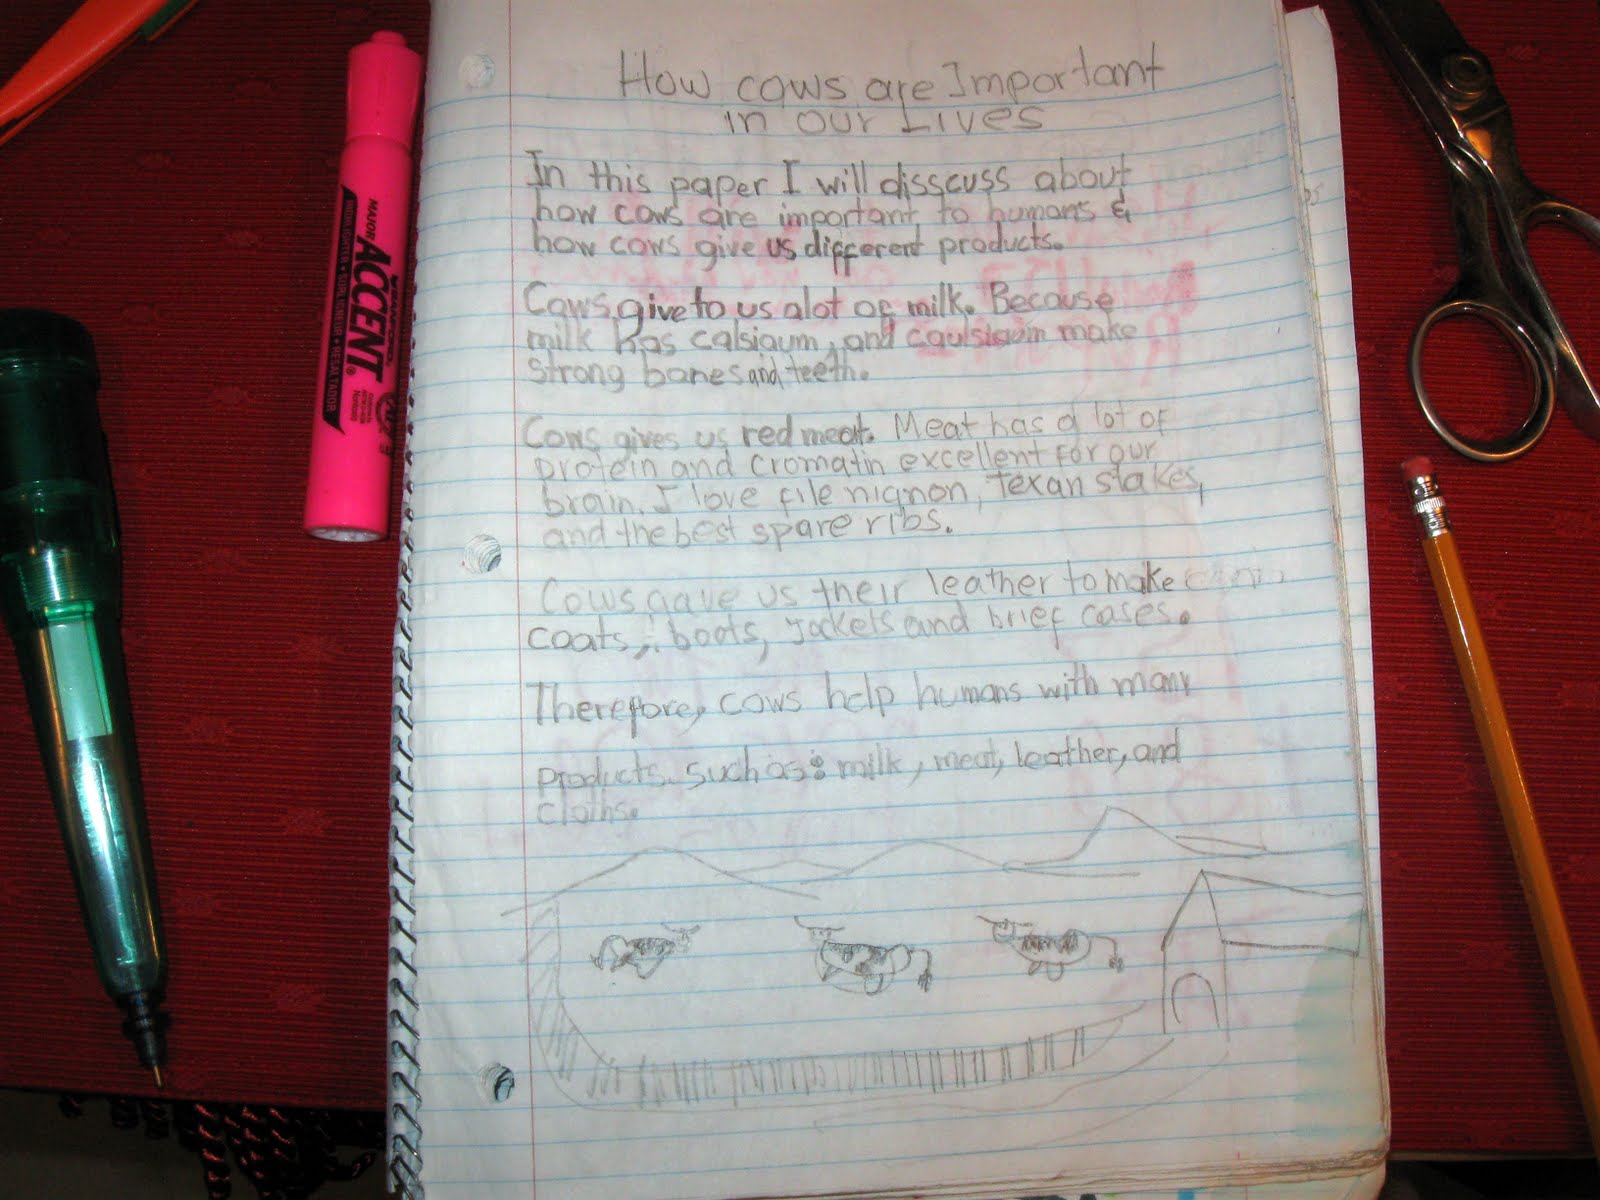 How cows are Important
in our Lives
In this paper I will disscuss about
how cows are important to humans &
how cows give us different products.
Cows give to us alot of milk. Because
milk has calsiaum, and caulsiaum make
strong bones and teeth.
Cows gives us red meat. Meat has a lot of
protein and cromatin excellent for our
brain. I love file nignon, texan stakes,
and the best spare ribs.
Cows gave us their leather to make
coats, boots, jackets and brief cases.
Therefore, cows help humans with many
products. such as: milk, meat, leather, and
cloths.
MAJOR
ACCENT
HIGHLIGHTER • SURLIGNEUR • RESALTADOR